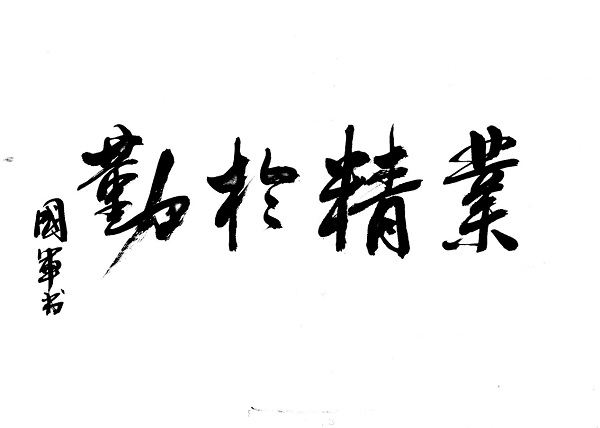 業精於勤
國軍书